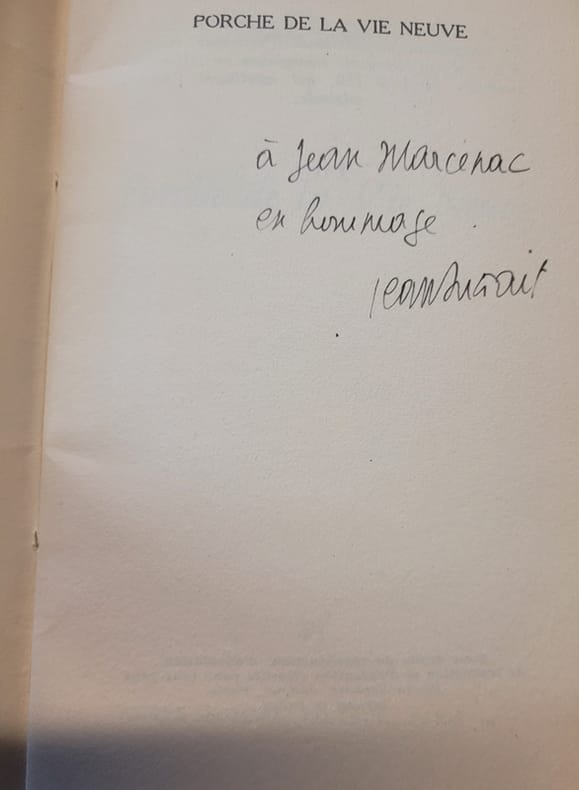 PORCHE DE LA VIE NEUVE
à Jean Marcenac
en hommage
Jean